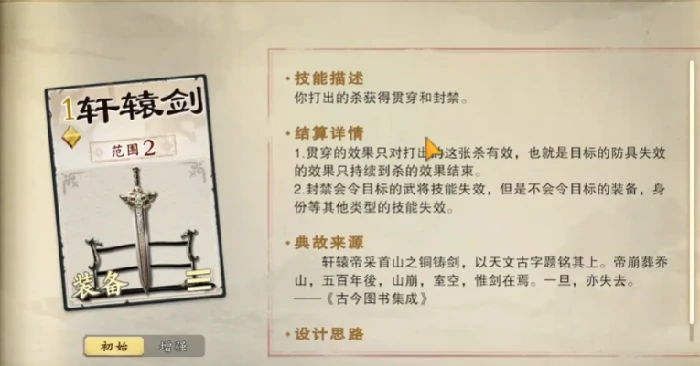 1轩辕剑
范围2
装备 三
初始 增强
·技能描述
你打出的杀获得贯穿和封禁。
·结算详情
1.贯穿的效果只对打出的这张杀有效，也就是目标的防具失效
的效果只持续到杀的效果结束。
2.封禁会令目标的武将技能失效，但是不会令目标的装备，身
份等其他类型的技能失效。
·典故来源
轩辕帝采首山之铜铸剑，以天文古字题铭其上。帝崩葬乔
山，五百年後，山崩，室空，惟剑在焉。一旦，亦失去。
——《古今图书集成》
·设计思路